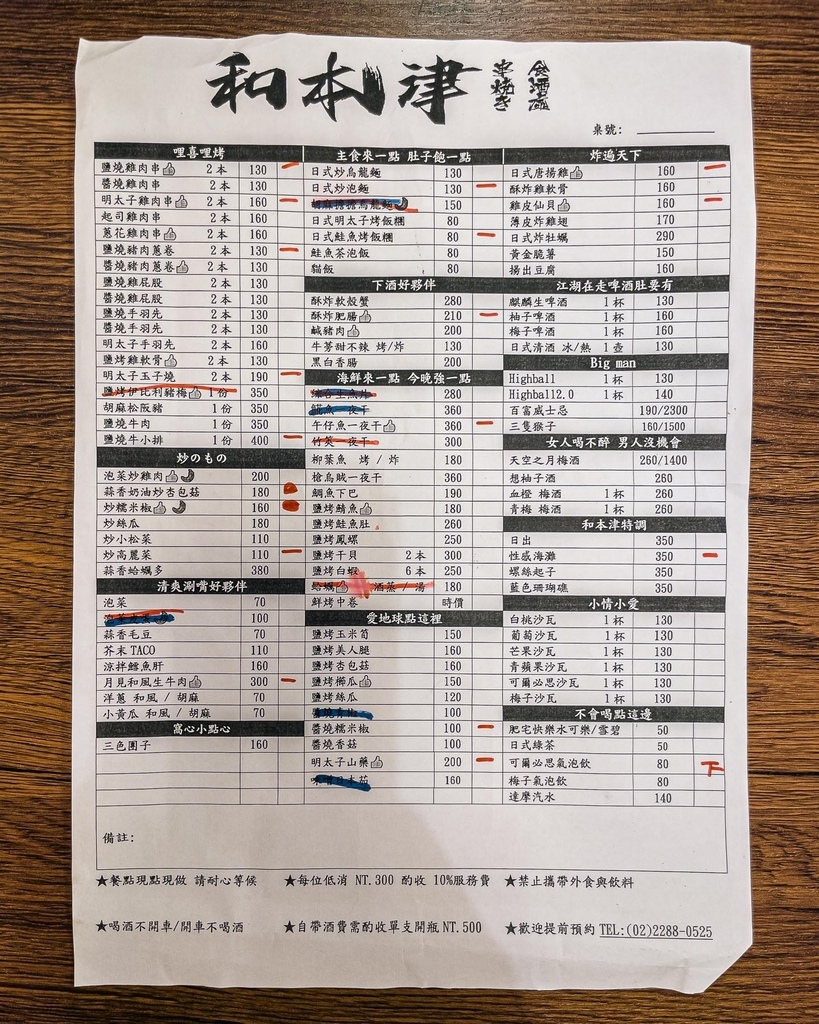 和本津
串焼き
食酒處
桌號:
哩喜哩烤
鹽燒雞肉串 2本 130
醬燒雞肉串 2本 130
明太子雞肉串 2本 160
起司雞肉串 2本 160
蔥花雞肉串 2本 160
鹽燒豬肉蔥卷 2本 130
醬燒豬肉蔥卷 2本 130
鹽燒雞屁股 2本 130
醬燒雞屁股 2本 130
鹽燒手羽先 2本 130
醬燒手羽先 2本 130
明太子手羽先 2本 160
鹽烤雞軟骨 2本 130
明太子玉子燒 2本 190
鹽烤伊比利豬梅 1份 350
胡麻松阪豬 1份 350
鹽燒牛肉 1份 350
鹽燒牛小排 1份 400
炒のもの
泡菜炒雞肉 200
蒜香奶油炒杏包菇 180
炒糯米椒 160
炒絲瓜 180
炒小松菜 110
炒高麗菜 110
蒜香蛤蠣多 380
清爽涮嘴好夥伴
泡菜 70
100
蒜香毛豆 70
芥末TACO 110
涼拌鱈魚肝 160
月見和風生牛肉 300
洋蔥 和風 / 胡麻 70
小黃瓜 和風 / 胡麻 70
窩心小點心
三色團子 160
主食來一點 肚子飽一點
日式炒烏龍麵 130
日式炒泡麵 130
胡麻擔擔烏龍麵 150
日式明太子烤飯糰 80
日式鮭魚烤飯糰 80
鮭魚茶泡飯 80
貓飯 80
下酒好夥伴
酥炸軟殼蟹 280
酥炸肥腸 210
鹹豬肉 200
牛蒡甜不辣 烤/炸 130
黑白香腸 200
海鮮來一點 今晚強一點
280
魚一夜干 360
午仔魚一夜干 360
竹筴一夜干 300
柳葉魚 烤 / 炸 180
槍烏賊一夜干 360
鯛魚下巴 190
鹽烤鯖魚 180
鹽烤鮭魚肚 260
鹽烤鳳螺 250
鹽烤干貝 2本 300
鹽烤白蝦 6本 250
蛤蠣 酒蒸 / 湯 180
鮮烤中卷 時價
愛地球點這裡
鹽烤玉米筍 150
鹽烤美人腿 160
鹽烤杏包菇 160
鹽烤櫛瓜 150
鹽烤絲瓜 120
醬燒青椒 100
醬燒糯米椒 100
醬燒香菇 100
明太子山藥 200
味噌日本茄 160
炸遍天下
日式唐揚雞 160
酥炸雞軟骨 160
雞皮仙貝 160
薄皮炸雞翅 170
日式炸牡蠣 290
黃金脆薯 150
揚出豆腐 160
江湖在走啤酒肚要有
麒麟生啤酒 1杯 130
柚子啤酒 1杯 160
梅子啤酒 1杯 160
日式清酒 冰/熱 1壺 130
Big man
Highball 1杯 130
Highball2.0 1杯 140
百富威士忌 190/2300
三隻猴子 160/1500
女人喝不醉 男人沒機會
天空之月梅酒 260/1400
想柚子酒 260
血橙 梅酒 1杯 260
青梅 梅酒 1杯 260
和本津特調
日出 350
性感海灘 350
螺絲起子 350
藍色珊瑚礁 350
小情小愛
白桃沙瓦 1杯 130
葡萄沙瓦 1杯 130
芒果沙瓦 1杯 130
青蘋果沙瓦 1杯 130
可爾必思沙瓦 1杯 130
梅子沙瓦 1杯 130
不會喝點這邊
肥宅快樂水可樂/雪碧 50
日式綠茶 50
可爾必思氣泡飲 80 下
梅子氣泡飲 80
達摩汽水 140
備註:
★餐點現點現做 請耐心等候
★每位低消 NT.300 酌收 10%服務費
★禁止攜帶外食與飲料
★喝酒不開車/開車不喝酒
★自帶酒費需酌收單支開瓶NT.500
★歡迎提前預約TEL:(02)2288-0525